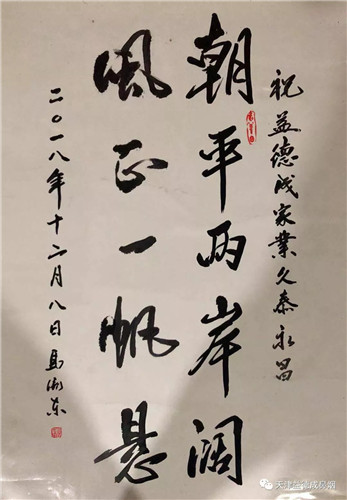 祝益德成家業久泰永昌
朝平两岸阔
風正一帆懸
二〇一八年十二月八日
天津益德成枫烟